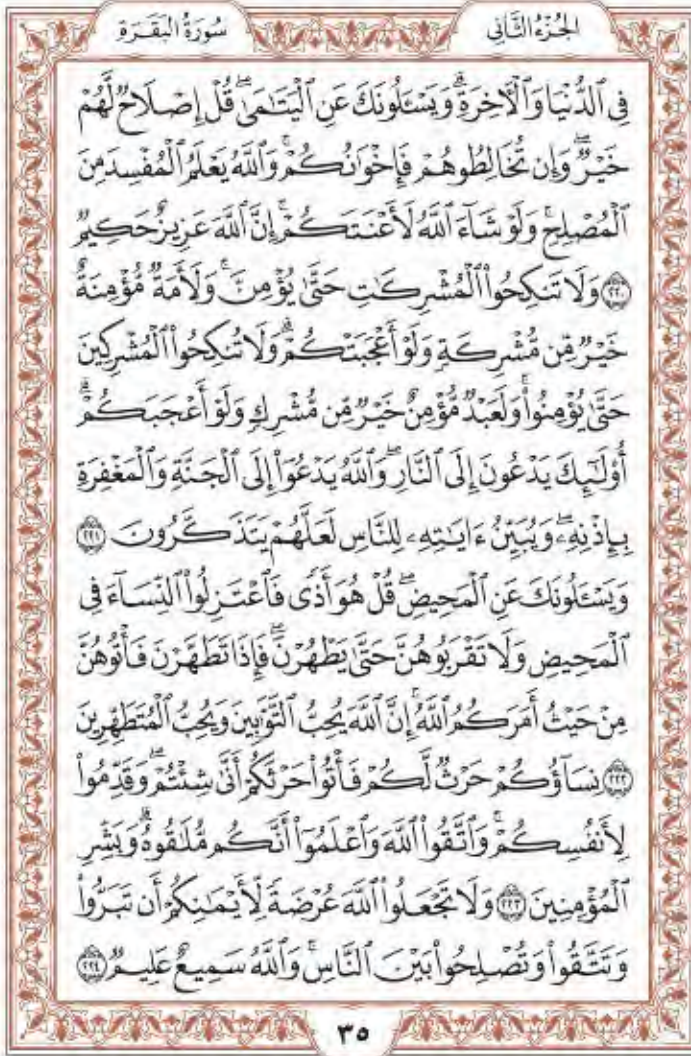 الجُزْءُ الثَّانِي سُورَةُ البَقَرَةِ
فِي ٱلدُّنْيَا وَٱلْءَاخِرَةِۗ وَيَسْـَٔلُونَكَ عَنِ ٱلْيَتَٰمَىٰۖ قُلْ إِصْلَاحٌ لَّهُمْ
خَيْرٌۖ وَإِن تُخَالِطُوهُمْ فَإِخْوَٰنُكُمْۚ وَٱللَّهُ يَعْلَمُ ٱلْمُفْسِدَ مِنَ
ٱلْمُصْلِحِۚ وَلَوْ شَآءَ ٱللَّهُ لَأَعْنَتَكُمْۚ إِنَّ ٱللَّهَ عَزِيزٌ حَكِيمٌ
﴿٢٢٠﴾ وَلَا تَنكِحُوا۟ ٱلْمُشْرِكَٰتِ حَتَّىٰ يُؤْمِنَّۚ وَلَأَمَةٌ مُّؤْمِنَةٌ
خَيْرٌ مِّن مُّشْرِكَةٍ وَلَوْ أَعْجَبَتْكُمْۗ وَلَا تُنكِحُوا۟ ٱلْمُشْرِكِينَ
حَتَّىٰ يُؤْمِنُوا۟ۚ وَلَعَبْدٌ مُّؤْمِنٌ خَيْرٌ مِّن مُّشْرِكٍ وَلَوْ أَعْجَبَكُمْۗ
أُو۟لَٰٓئِكَ يَدْعُونَ إِلَى ٱلنَّارِۖ وَٱللَّهُ يَدْعُوٓا۟ إِلَى ٱلْجَنَّةِ وَٱلْمَغْفِرَةِ
بِإِذْنِهِۦۖ وَيُبَيِّنُ ءَايَٰتِهِۦ لِلنَّاسِ لَعَلَّهُمْ يَتَذَكَّرُونَ ﴿٢٢١﴾
وَيَسْـَٔلُونَكَ عَنِ ٱلْمَحِيضِۖ قُلْ هُوَ أَذًى فَٱعْتَزِلُوا۟ ٱلنِّسَآءَ فِي
ٱلْمَحِيضِ وَلَا تَقْرَبُوهُنَّ حَتَّىٰ يَطْهُرْنَۖ فَإِذَا تَطَهَّرْنَ فَأْتُوهُنَّ
مِنْ حَيْثُ أَمَرَكُمُ ٱللَّهُۚ إِنَّ ٱللَّهَ يُحِبُّ ٱلتَّوَّٰبِينَ وَيُحِبُّ ٱلْمُتَطَهِّرِينَ
﴿٢٢٢﴾ نِسَآؤُكُمْ حَرْثٌ لَّكُمْ فَأْتُوا۟ حَرْثَكُمْ أَنَّىٰ شِئْتُمْۖ وَقَدِّمُوا۟
لِأَنفُسِكُمْۚ وَٱتَّقُوا۟ ٱللَّهَ وَٱعْلَمُوٓا۟ أَنَّكُم مُّلَٰقُوهُۗ وَبَشِّرِ
ٱلْمُؤْمِنِينَ ﴿٢٢٣﴾ وَلَا تَجْعَلُوا۟ ٱللَّهَ عُرْضَةً لِّأَيْمَٰنِكُمْ أَن تَبَرُّوا۟
وَتَتَّقُوا۟ وَتُصْلِحُوا۟ بَيْنَ ٱلنَّاسِۚ وَٱللَّهُ سَمِيعٌ عَلِيمٌ ﴿٢٢٤﴾
٣٥